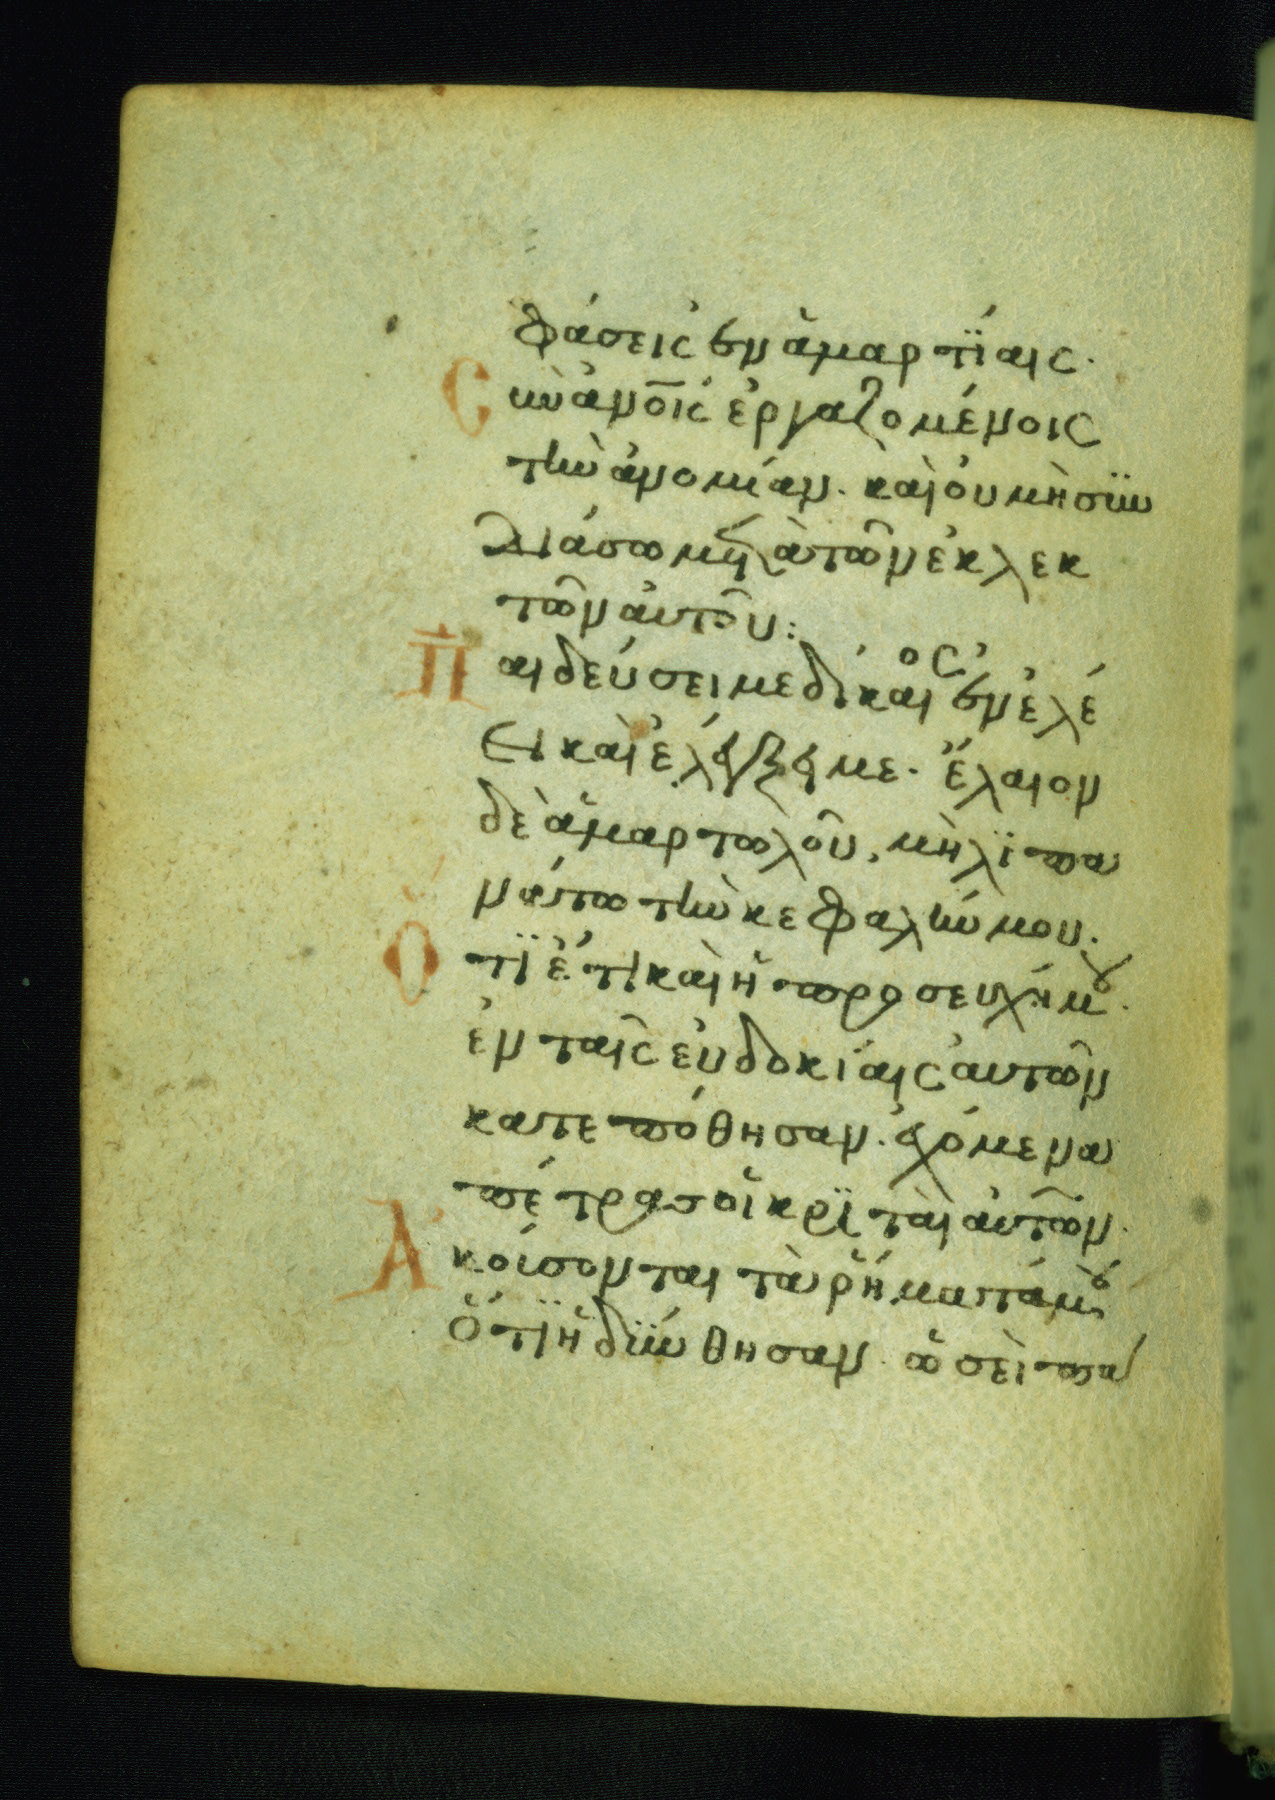 φάσεις ἐν ἁμαρτίαις·
Σὺν ἀνοῖς ἐργαζομένοις
τὴν ἀνομίαν· καὶ οὐ μὴ συν
διάσω μετὰ τῶν ἐκλεκ
τῶν αὐτοῦ:
Παιδεύσει με δίκαιος ἐν ἐλέ
ει καὶ ἐλέγξει με· ἔλαιον
δὲ ἁμαρτωλοῦ, μὴ λιπα
νάτω τὴν κεφαλήν μου·
Ὅτι ἔτι καὶ ἡ προσευχή μου·
ἐν ταῖς εὐδοκίαις αὐτῶν
κατεπόθησαν· ἐχόμενα
πέτρας οἱ κριταὶ αὐτῶν·
Ἀκούσονται τὰ ῥήματά μου
ὅτι ἡδύνθησαν· ὡσεὶ πα